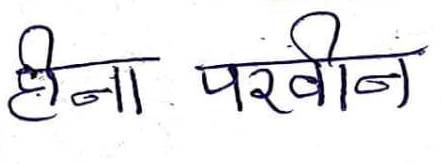 हीना परवीन